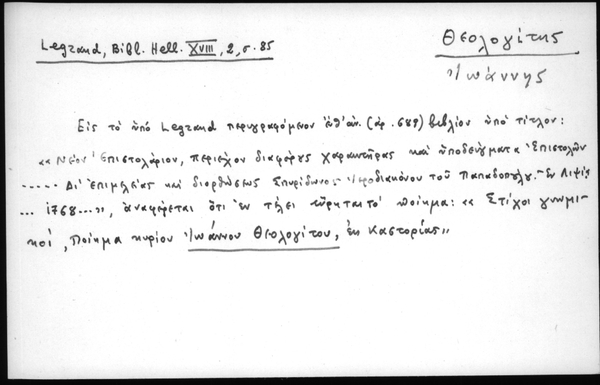 Legrand, Bibl. Hell. XVIII, 2, σ. 85
Θεολογίτης
Ἰωάννης
Εἰς τὸ ὑπὸ Legrand περιγραφόμενον (ἀρ. 689) βιβλίον ὑπὸ τίτλον:
«Νέον Ἐπιστολάριον, περιέχον διαφόρους χαρακτῆρας καὶ ὑποδείγματα Ἐπιστολῶν
..... Δι' ἐπιμελείας καὶ διορθώσεως Σπυρίδωνος Ἱεροδιακόνου τοῦ Παπαδοπούλου.- Ἐν Λιψίᾳ
... 1768...», ἀναφέρεται ὅτι ἐν τέλει εὕρηται τὸ ποίημα: «Στίχοι γνωμι-
κοί, Ποίημα κυρίου Ἰωάννου Θεολογίτου, ἐκ Καστορίας»